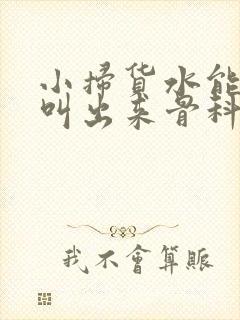 小掃貨水能
叫出来骨科
我不會算賬